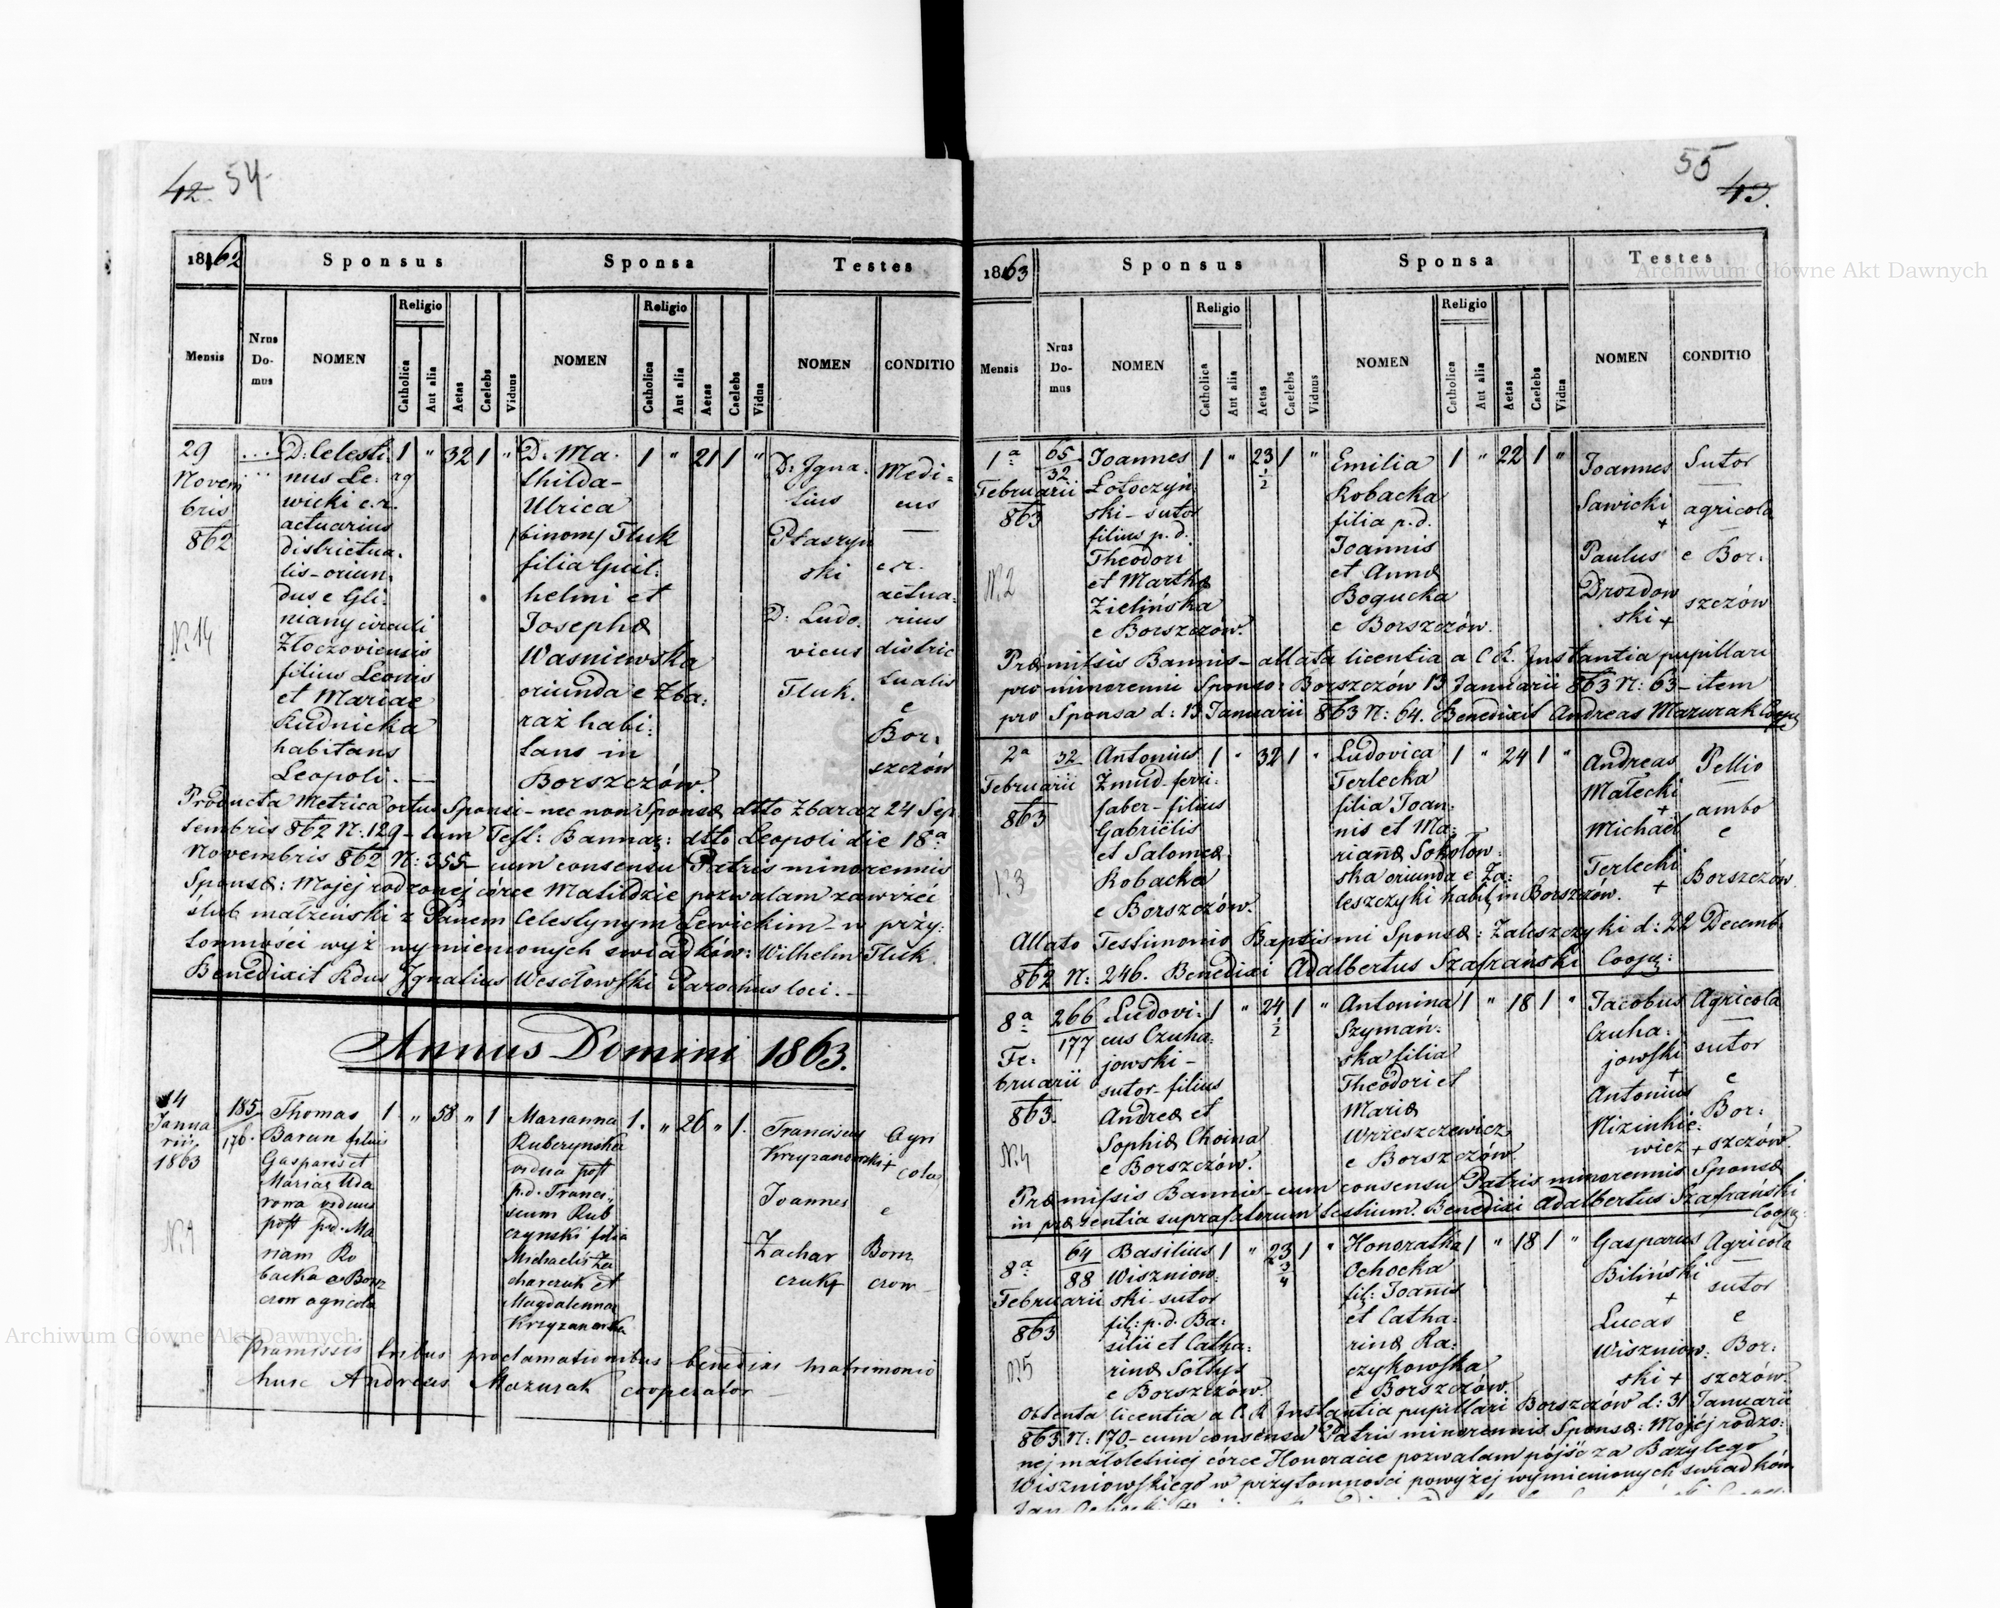 42. 54
1862
Sponsus
Sponsa
Testes
Mensis
Nrus Do-mus
NOMEN
Religio
Catholica
Aut alia
Aetas
Caelebs
Viduus
NOMEN
Religio
Catholica
Aut alia
Aetas
Caelebs
Vidua
NOMEN
CONDITIO
29
Novem
bris
862
N. 14
D: Celesti-
nus Le-
wicki c.r.
actuarius
districtua-
lis-oriun-
dus e Gli-
niany circuli
Złoczoviensis
filius Leonis
et Mariae
Rudnicka
habitans
Leopoli. —
1 " 32 1 "
D. Ma-
thilda-
Ulrica
/binom/ Tluk
filia Guil:
helmi et
Josephæ
Wasniewska
oriunda e Zba:
raż habi:
tans in
Borszczów.
1 " 21 1 "
D: Igna-
tius
Ptaszyn
ski
D: Ludo-
vicus
Tluk.
Medi=
cus
—
c.r.
actua-
rius
distric
tualis
e
Bor:
szczów
Producta Metrica ortus Sponsi - nec non Sponsæ dtto Zbaraz 24 Sep
tembris 862 N: 129 - tum Test: Bannar: dtto Leopoli die 18ª
Novembris 862 N: 355 - cum consensu Patris minorennis
Sponsæ: Mojej rodzonej córce Matildzie pozwalam zawrzeć
ślub małżeński z Panem Celestynym Lewickim - w przy:
tomności wyż wymienionych swiadków: Wilhelm Tluk.
Benedixit Rdus Ignatius Wesołowski Parochus loci. —
Annus Domini 1863.
14
Janua
rii
1863
N. 1
185
176.
Thomas
Baran filius
Gasparis et
Mariae Uda
rowa viduus
post p.d. Ma
riam Ro
backa e Borsz
czow agricola
1. " 58 " 1
Marianna
Rubczynska
vidua post
p.d. Franci-
scum Rub
czynski filia
Michaelis Za
charczuk et
Magdalenna
Krzyzanowska
1. " 26 " 1.
Franciscus
Krzyzanowski +
Joannes
Zachar
czuk +
Agri
colae
e
Borsz
czow
Pramissis tribus proclamationibus benedixi matrimonio
hunc Andreas Mazurak cooperator —
55 43.
1863
Sponsus
Sponsa
Testes
Mensis
Nrus Do-mus
NOMEN
Religio
Catholica
Aut alia
Aetas
Caelebs
Viduus
NOMEN
Religio
Catholica
Aut alia
Aetas
Caelebs
Vidua
NOMEN
CONDITIO
1ª
Februarii
863
N. 2
65
32
Joannes
Łotoczyn
ski - sutor
filius p.d.
Theodori
et Marthæ
Zielińska
e Borszczów.
1 " 23 ½ 1 "
Emilia
Kobacka
filia p.d.
Joannis
et Annæ
Bogucka
e Borszczów.
1 " 22 1 "
Joannes
Sawicki
+
Paulus
Drozdow
ski +
Sutor
—
agricola
—
e Bor:
szczów
Præmissis Bannis - allata licentia a C.K. Instantia pupillari
pro minorenni Sponso: Borszczów 13 Januarii 863 N: 63 - item
pro Sponsa d: 13 Januarii 863 N: 64. Benedixit Andreas Mazurak Coop.
2ª
Februarii
863
N. 3
32
Antonius
Żmud - ferri:
faber - filius
Gabriëlis
et Salomeæ
Kobacka
e Borszczów.
1 " 32 1 "
Ludovica
Terlecka
filia Joan:
nis et Ma:
riannæ Sokołow:
ska oriunda e Za:
leszczyki habit. in Borszczów.
1 " 24 1 "
Andreas
Małecki
+
Michaël
Terlecki
+
Pellio
ambo
e
Borszczów.
Allato Testimonio Baptismi Sponsæ: Zaleszczyki d: 22 Decemb.
862 N: 246. Benedixi Adalbertus Szafrański Coop:
8ª
Fe:
bruarii
863.
N. 4
266
177
Ludovi-
cus Czuha-
jowski -
sutor - filius
Andreæ et
Sophiæ Choina
e Borszczów.
1 " 24 ½ 1 "
Antonina
Szymań:
ska filia
Theodori et
Mariæ
Wrzeszczewicz
e Borszczów
1 " 18 1 "
Jacobus
Czuha-
jowski
+
Antonius
Nizinkie:
wicz +
Agricola
sutor
e
Bor:
szczów
Præmissis Bannis - cum consensu Patris minorennis Sponsæ
in præsentia suprafatorum testium. Benedixi Adalbertus Szafrański
Coop:
8ª
Februarii
863
N5
64
88
Basilius
Wiszniow-
ski - sutor
fil: p.d. Ba:
silii et Catha:
rinæ Sołtys
e Borszczów.
1 " 23 ¾ 1 "
Honoratha
Ochocka
fil: Joanis
et Catha:
rinæ Ra:
czykowska
e Borszczów.
1 " 18 1 "
Gasparus
Biliński
+
Lucas
Wiszniow:
ski +
Agricola
sutor
e
Bor:
szczów.
Obtenta licentia a C.R. Instantia pupillari Borszczów d: 31 Januarii
863 N: 170 - cum consensu Patris minorennis Sponsæ: Mojéj rodzo:
nej małoletniej córce Honoracie pozwalam pójść za Bazylego
Wiszniowskiego w przytomności powyżej wymienionych świadków
Archiwum Główne Akt Dawnych
Archiwum Główne Akt Dawnych